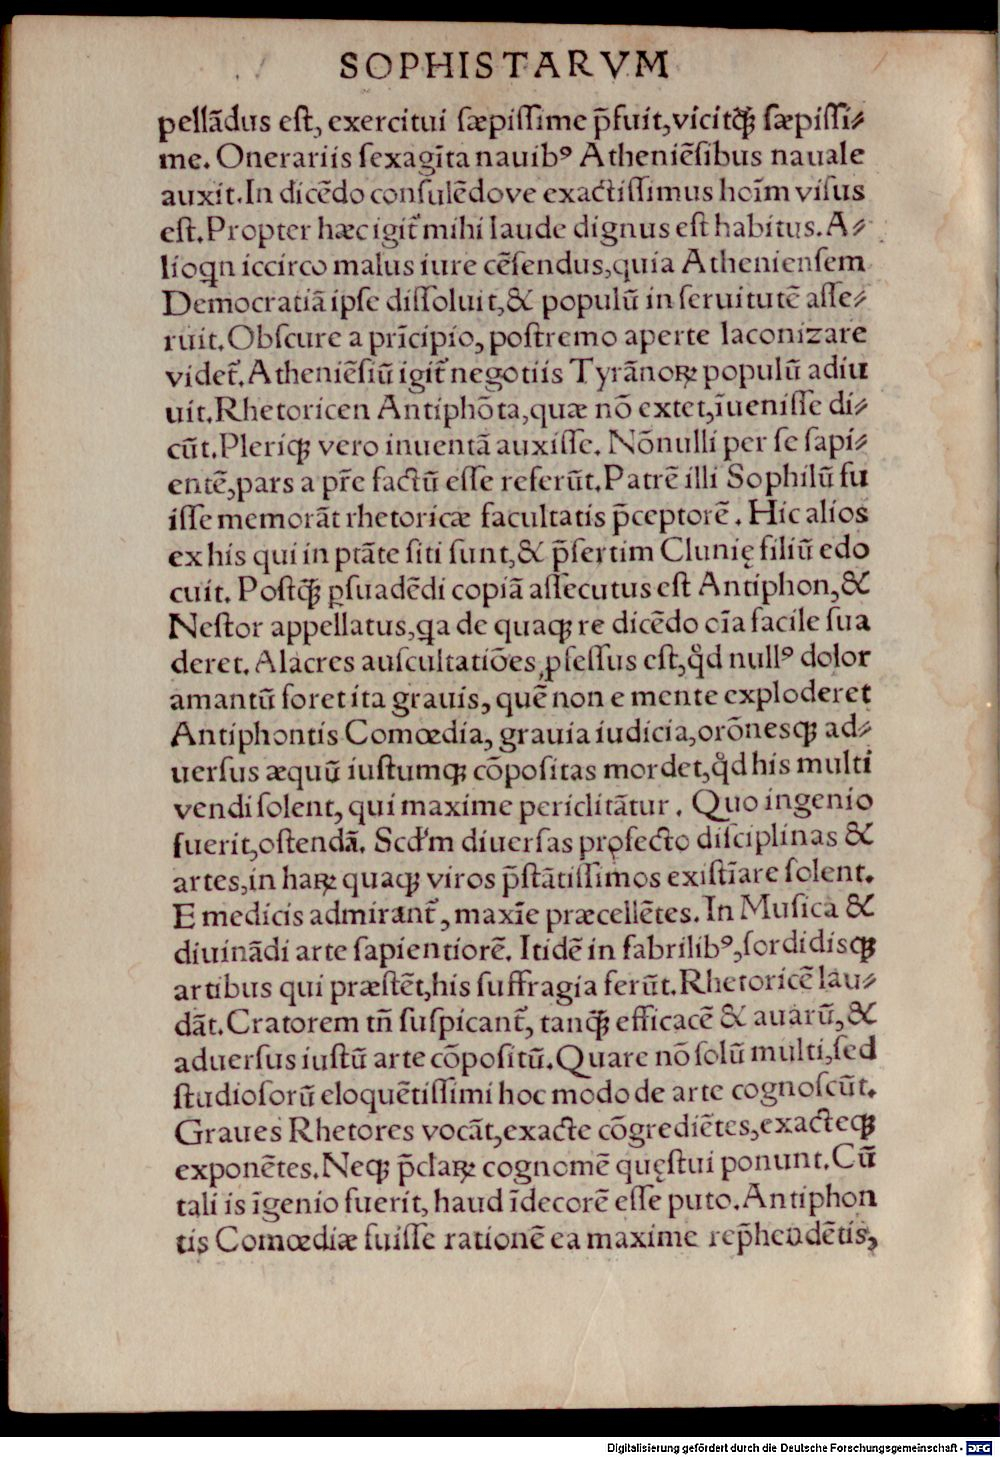 SOPHISTARVM
pellādus est, exercitui sæpissime p̄fuit, vicitq̃ꝫ sæpissi⸗
me. Onerariis sexagīta nauibꝰ Atheniēsibus nauale
auxit. In dicēdo consulēdove exactissimus hoīm visus
est. Propter hæc igit᷑ mihi laude dignus est habitus. A⸗
lioqn iccirco malus iure cēsendus, quia Atheniensem
Democratiā ipse dissoluit, & populū in seruitutē asse⸗
ruit. Obscure a prīcipio, postremo aperte laconizare
videt᷑. Atheniēsiū igit᷑ negotiis Tyrānoꝝ populū adiu
uit. Rhetoricen Antiphōta, quæ nō extet, īuenisse di⸗
cūt. Pleriqꝫ vero inuentā auxisse. Nōnulli per se sapi⸗
entē, pars a pr̄e factū esse referūt. Patrē illi Sophilū fu
isse memorāt rhetoricæ facultatis p̄ceptorē. Hic alios
ex his qui in ptāte siti sunt, & p̄sertim Clunię filiū edo
cuit. Postq̃ꝫ ꝑsuadēdi copiā assecutus est Antiphon, &
Nestor appellatus, qa de quaqꝫ re dicēdo oīa facile sua
deret. Alacres auscultatiōes ꝓfessus est, qd̓ nullꝰ dolor
amantū foret ita grauis, quē non e mente exploderet
Antiphontis Comœdia, grauia iudicia, orōnesqꝫ ad⸗
uersus æquū iustumqꝫ cōpositas mordet, qd̓ his multi
vendi solent, qui maxime periclitātur. Quo ingenio
fuerit, ostendā. Scd'm diuersas profecto disciplinas &
artes, in haꝝ quaqꝫ viros p̄stātissimos existīare solent.
E medicis admirant᷑, maxīe præcellētes. In Musica &
diuinādi arte sapientiorē. Itidē in fabrilibꝰ, sordidisqꝫ
artibus qui præstēt, his suffragia ferūt. Rhetoricē lau⸗
dāt. Cratorem tñ suspicant᷑, tanq̃ꝫ efficacē & auarū, &
aduersus iustū arte cōpositū. Quare nō solū multi, sed
studiosorū eloquētissimi hoc modo de arte cognoscūt.
Graues Rhetores vocāt, exacte cōgrediētes, exacteqꝫ
exponētes. Neqꝫ p̄claꝝ cognomē quęstui ponunt. Cū
tali is īgenio fuerit, haud īdecorē esse puto. Antiphon
tis Comœdiæ fuisse rationē ea maxime rep̄hendētis,
Digitalisierung gefördert durch die Deutsche Forschungsgemeinschaft - DFG